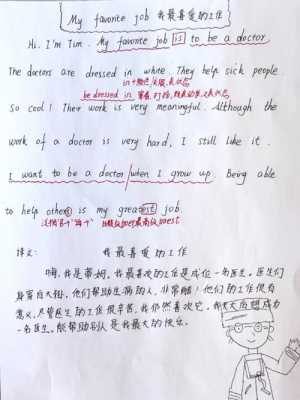 My favorite job 我最喜爱的工作
Hi, I'm Tim. My favorite job is to be a doctor.
The doctors are dressed in white. They help sick people.
in+颜色/衣服,表状态
be dressed in 穿着,打扮,既表动作又表状态
So cool! Their work is very meaningful. Although the
work of a doctor is very hard, I still like it.
I want to be a doctor/when I grow up. Being able
to help others is my greatest job.
译文: 我最喜爱的工作
嗨,我是蒂姆,我最喜欢的工作是成位一名医生。医生们
身穿白大褂,他们帮助生病的人,非常酷!他们的工作很有
意义,尽管医生的工作很辛苦,我仍然喜欢它。我长大后想成为
一名医生,能帮助别人是我最大的快乐。